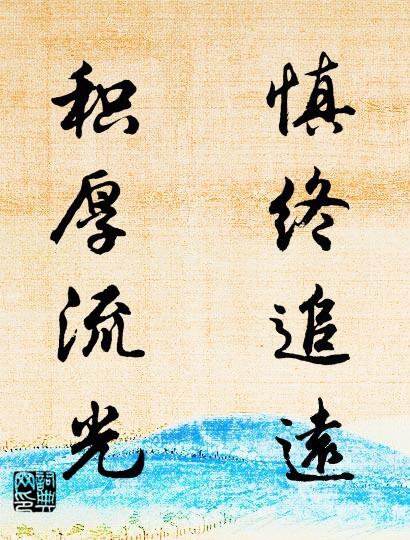 慎终追遠
积厚流光
词典网印